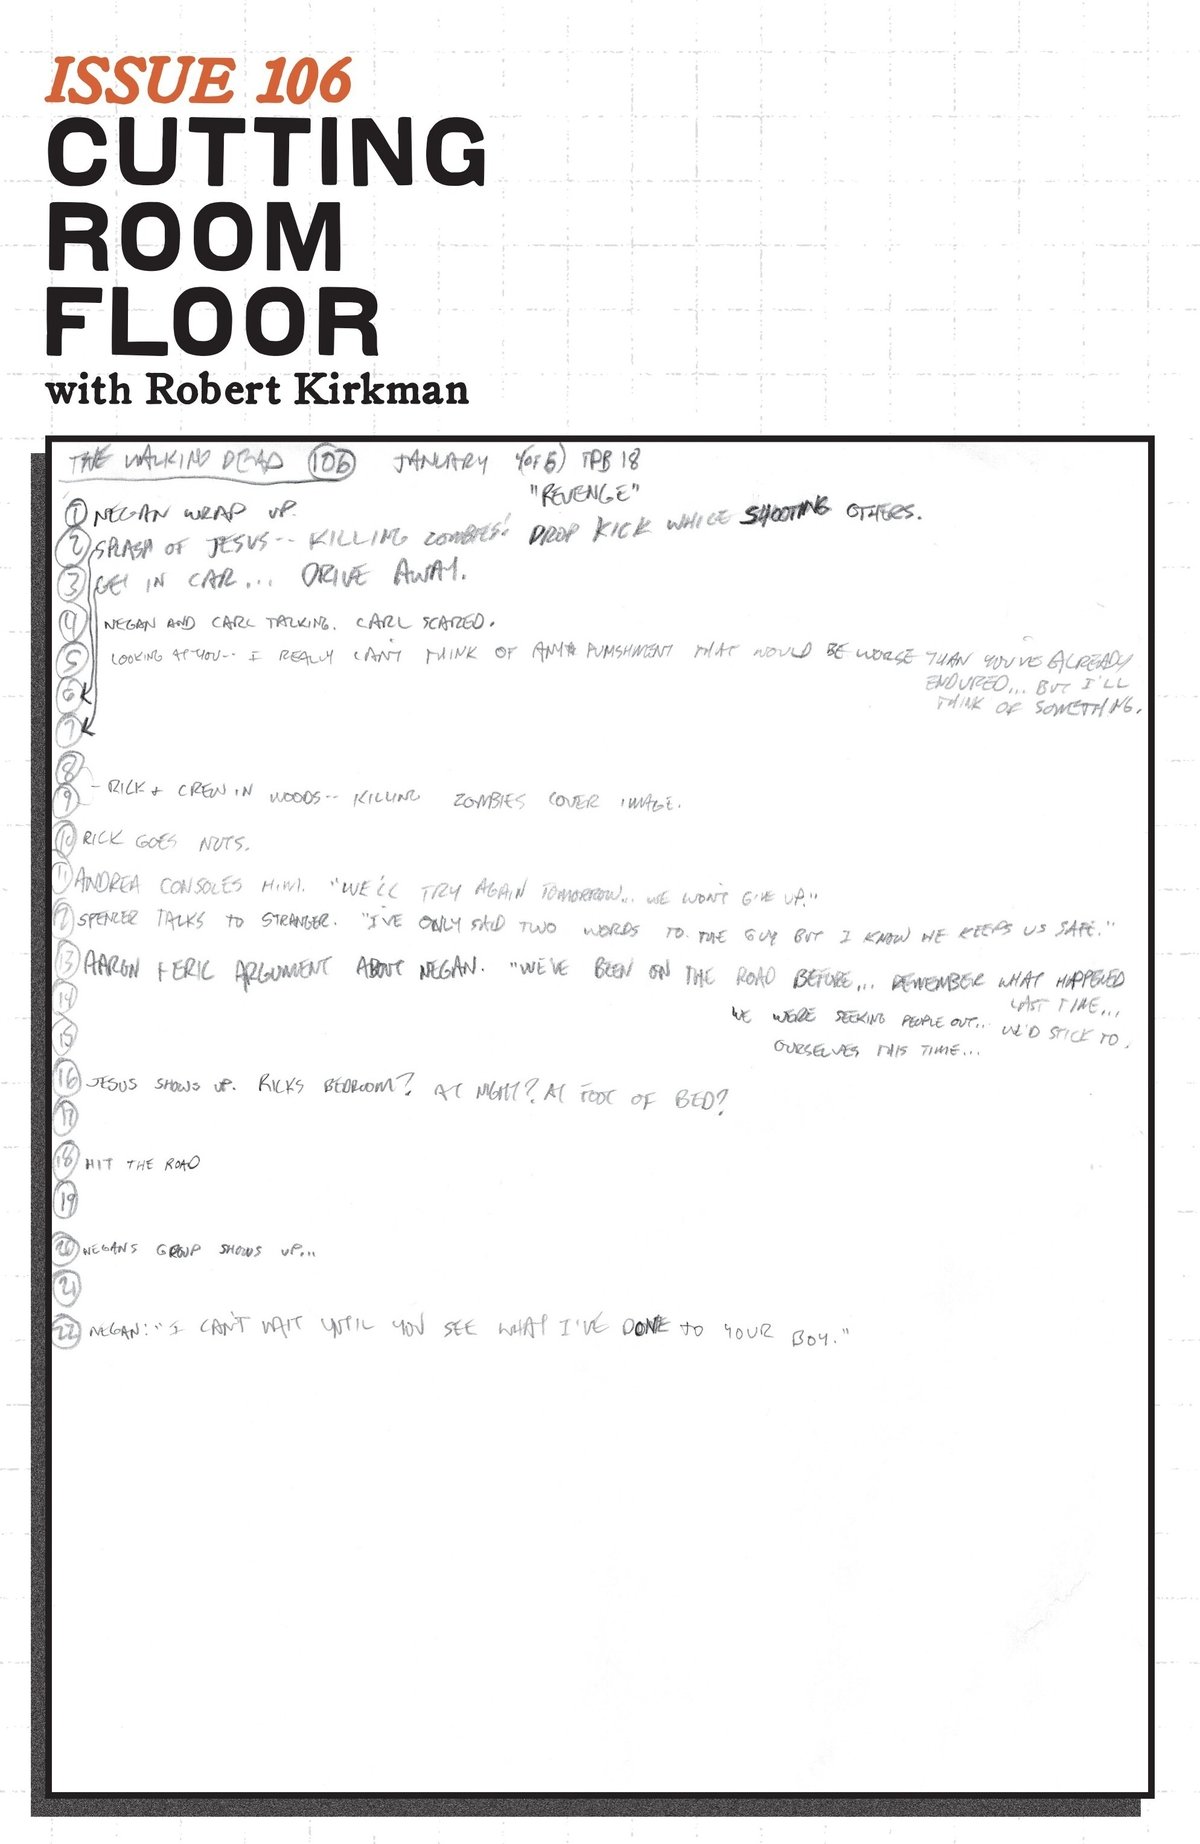 ISSUE 106
CUTTING
ROOM
FLOOR
with Robert Kirkman
THE WALKING DEAD 106 JANUARY 4 OF 6) TPB 18
"REVENGE"
1 NEGAN WRAP UP.
2 SPLASH OF JESUS-- KILLING ZOMBIES! DROP KICK WHILE SHOOTING OTHERS.
3 GET IN CAR... DRIVE AWAY.
4 NEGAN AND CARL TALKING. CARL SCARED.
5 LOOKING AT YOU-- I REALLY CAN'T THINK OF ANY PUNISHMENT THAT WOULD BE WORSE THAN YOU'VE ALREADY
ENDURED... BUT I'LL
6 THINK OF SOMETHING.
7
8
9 - RICK + CREW IN WOODS-- KILLING ZOMBIES COVER IMAGE.
10 RICK GOES NUTS.
11 ANDREA CONSOLES HIM. "WE'LL TRY AGAIN TOMORROW... WE WON'T GIVE UP."
12 SPENCER TALKS TO STRANGER. "I'VE ONLY SAID TWO WORDS TO THE GUY BUT I KNOW HE KEEPS US SAFE."
13 AARON + ERIC ARGUMENT ABOUT NEGAN. "WE'VE BEEN ON THE ROAD BEFORE... REMEMBER WHAT HAPPENED
LAST TIME...
14 WE WERE SEEKING PEOPLE OUT... WE'D STICK TO
15 OURSELVES THIS TIME...
16 JESUS SHOWS UP. RICKS BEDROOM? AT NIGHT? AT FOOT OF BED?
17
18 HIT THE ROAD
19
20 NEGANS GROUP SHOWS UP...
21
22 NEGAN: "I CAN'T WAIT UNTIL YOU SEE WHAT I'VE DONE TO YOUR BOY."